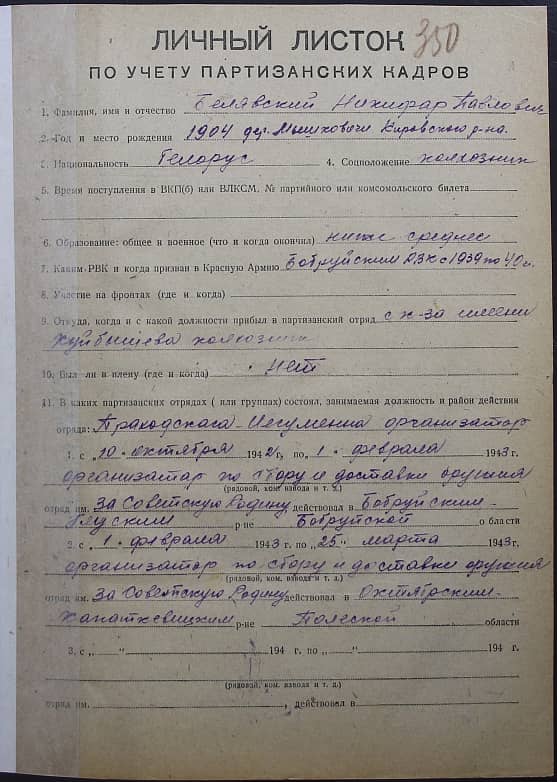 ЛИЧНЫЙ ЛИСТОК 350
ПО УЧЕТУ ПАРТИЗАНСКИХ КАДРОВ
1. Фамилия, имя и отчество Белявский Никифар Павлович
2. Год и место рождения 1904 дер. Мышковичи Кировского р-на.
3. Национальность Белорус 4. Соцположение колхозник
5. Время поступления в ВКП(б) или ВЛКСМ, № партийного или комсомольского билета
6. Образование: общее и военное (что и когда окончил) ниже среднее
7. Каким РВК и когда призван в Красную Армию Бобруйским РВК с 1939 по 40 г.
8. Участие на фронтах (где и когда)
9. Откуда, когда и с какой должности прибыл в партизанский отряд с к-за имени
Куйбышева колхозник
10. Был ли в плену (где и когда) нет
11. В каких партизанских отрядах (или группах) состоял, занимаемая должность и район действия
отряда: организатор
1. с „10" октября 1942 г, по „1" февраля 1943 г.
организатар по сбору и доставки оружия
(рядовой, ком. взвода и т. д.)
отряд им. За Советскую Родину действовал в Бобруйским-
Глуским р-не Бобруйской области
2. с „1" февраля 1943 г. по „25" марта 1943 г.
организатор по сбору и доставки оружия
(рядовой, ком. взвода и т. д.)
отряд им. За Советскую Родину действовал в Октябрским-
Капаткевицким р-не Полеской области
3. с „ " 194 г. по „ " 194 г.
(рядовой, ком. взвода и т. д.)
отряд им. , действовал в